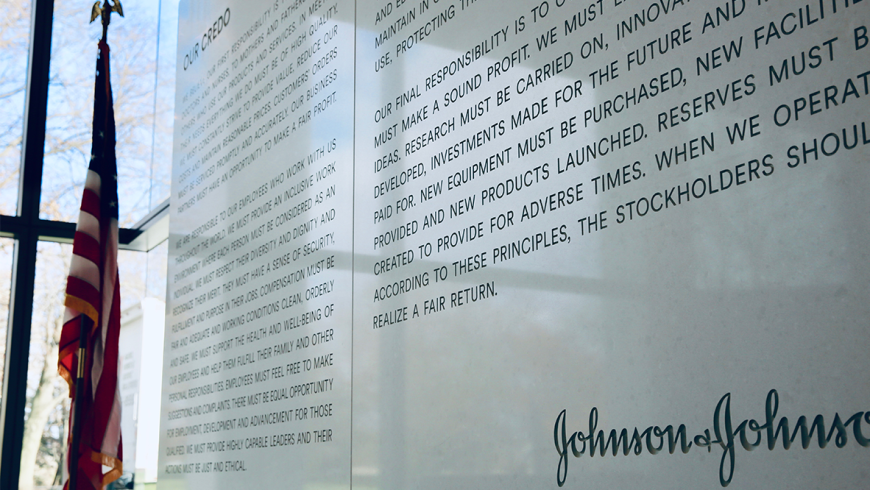 OUR CREDO
FIRST RESPONSIBILITY IS
AND NURSES, TO MOTHERS AND FATHERS
WHO USE OUR PRODUCTS AND SERVICES. IN MEETING
THEIR NEEDS EVERYTHING WE DO MUST BE OF HIGH QUALITY.
WE MUST CONSTANTLY STRIVE TO PROVIDE VALUE, REDUCE OUR
COSTS AND MAINTAIN REASONABLE PRICES. CUSTOMERS' ORDERS
MUST BE SERVICED PROMPTLY AND ACCURATELY. OUR BUSINESS
PARTNERS MUST HAVE AN OPPORTUNITY TO MAKE A FAIR PROFIT.
WE ARE RESPONSIBLE TO OUR EMPLOYEES WHO WORK WITH US
THROUGHOUT THE WORLD. WE MUST PROVIDE AN INCLUSIVE WORK
ENVIRONMENT WHERE EACH PERSON MUST BE CONSIDERED AS AN
INDIVIDUAL. WE MUST RESPECT THEIR DIVERSITY AND DIGNITY AND
RECOGNIZE THEIR MERIT. THEY MUST HAVE A SENSE OF SECURITY,
FULFILLMENT AND PURPOSE IN THEIR JOBS. COMPENSATION MUST BE
FAIR AND ADEQUATE AND WORKING CONDITIONS CLEAN, ORDERLY
AND SAFE. WE MUST SUPPORT THE HEALTH AND WELL-BEING OF
OUR EMPLOYEES AND HELP THEM FULFILL THEIR FAMILY AND OTHER
PERSONAL RESPONSIBILITIES. EMPLOYEES MUST FEEL FREE TO MAKE
SUGGESTIONS AND COMPLAINTS. THERE MUST BE EQUAL OPPORTUNITY
FOR EMPLOYMENT, DEVELOPMENT AND ADVANCEMENT FOR THOSE
QUALIFIED. WE MUST PROVIDE HIGHLY CAPABLE LEADERS AND THEIR
ACTIONS MUST BE JUST AND ETHICAL.
MAINTAIN IN
USE, PROTECTING
OUR FINAL RESPONSIBILITY IS TO
MUST MAKE A SOUND PROFIT. WE MUST
IDEAS. RESEARCH MUST BE CARRIED ON, INNOVA
DEVELOPED, INVESTMENTS MADE FOR THE FUTURE AND
PAID FOR. NEW EQUIPMENT MUST BE PURCHASED, NEW FACILITIE
PROVIDED AND NEW PRODUCTS LAUNCHED. RESERVES MUST B
CREATED TO PROVIDE FOR ADVERSE TIMES. WHEN WE OPERAT
ACCORDING TO THESE PRINCIPLES, THE STOCKHOLDERS SHOUL
REALIZE A FAIR RETURN.
Johnson & Johnso